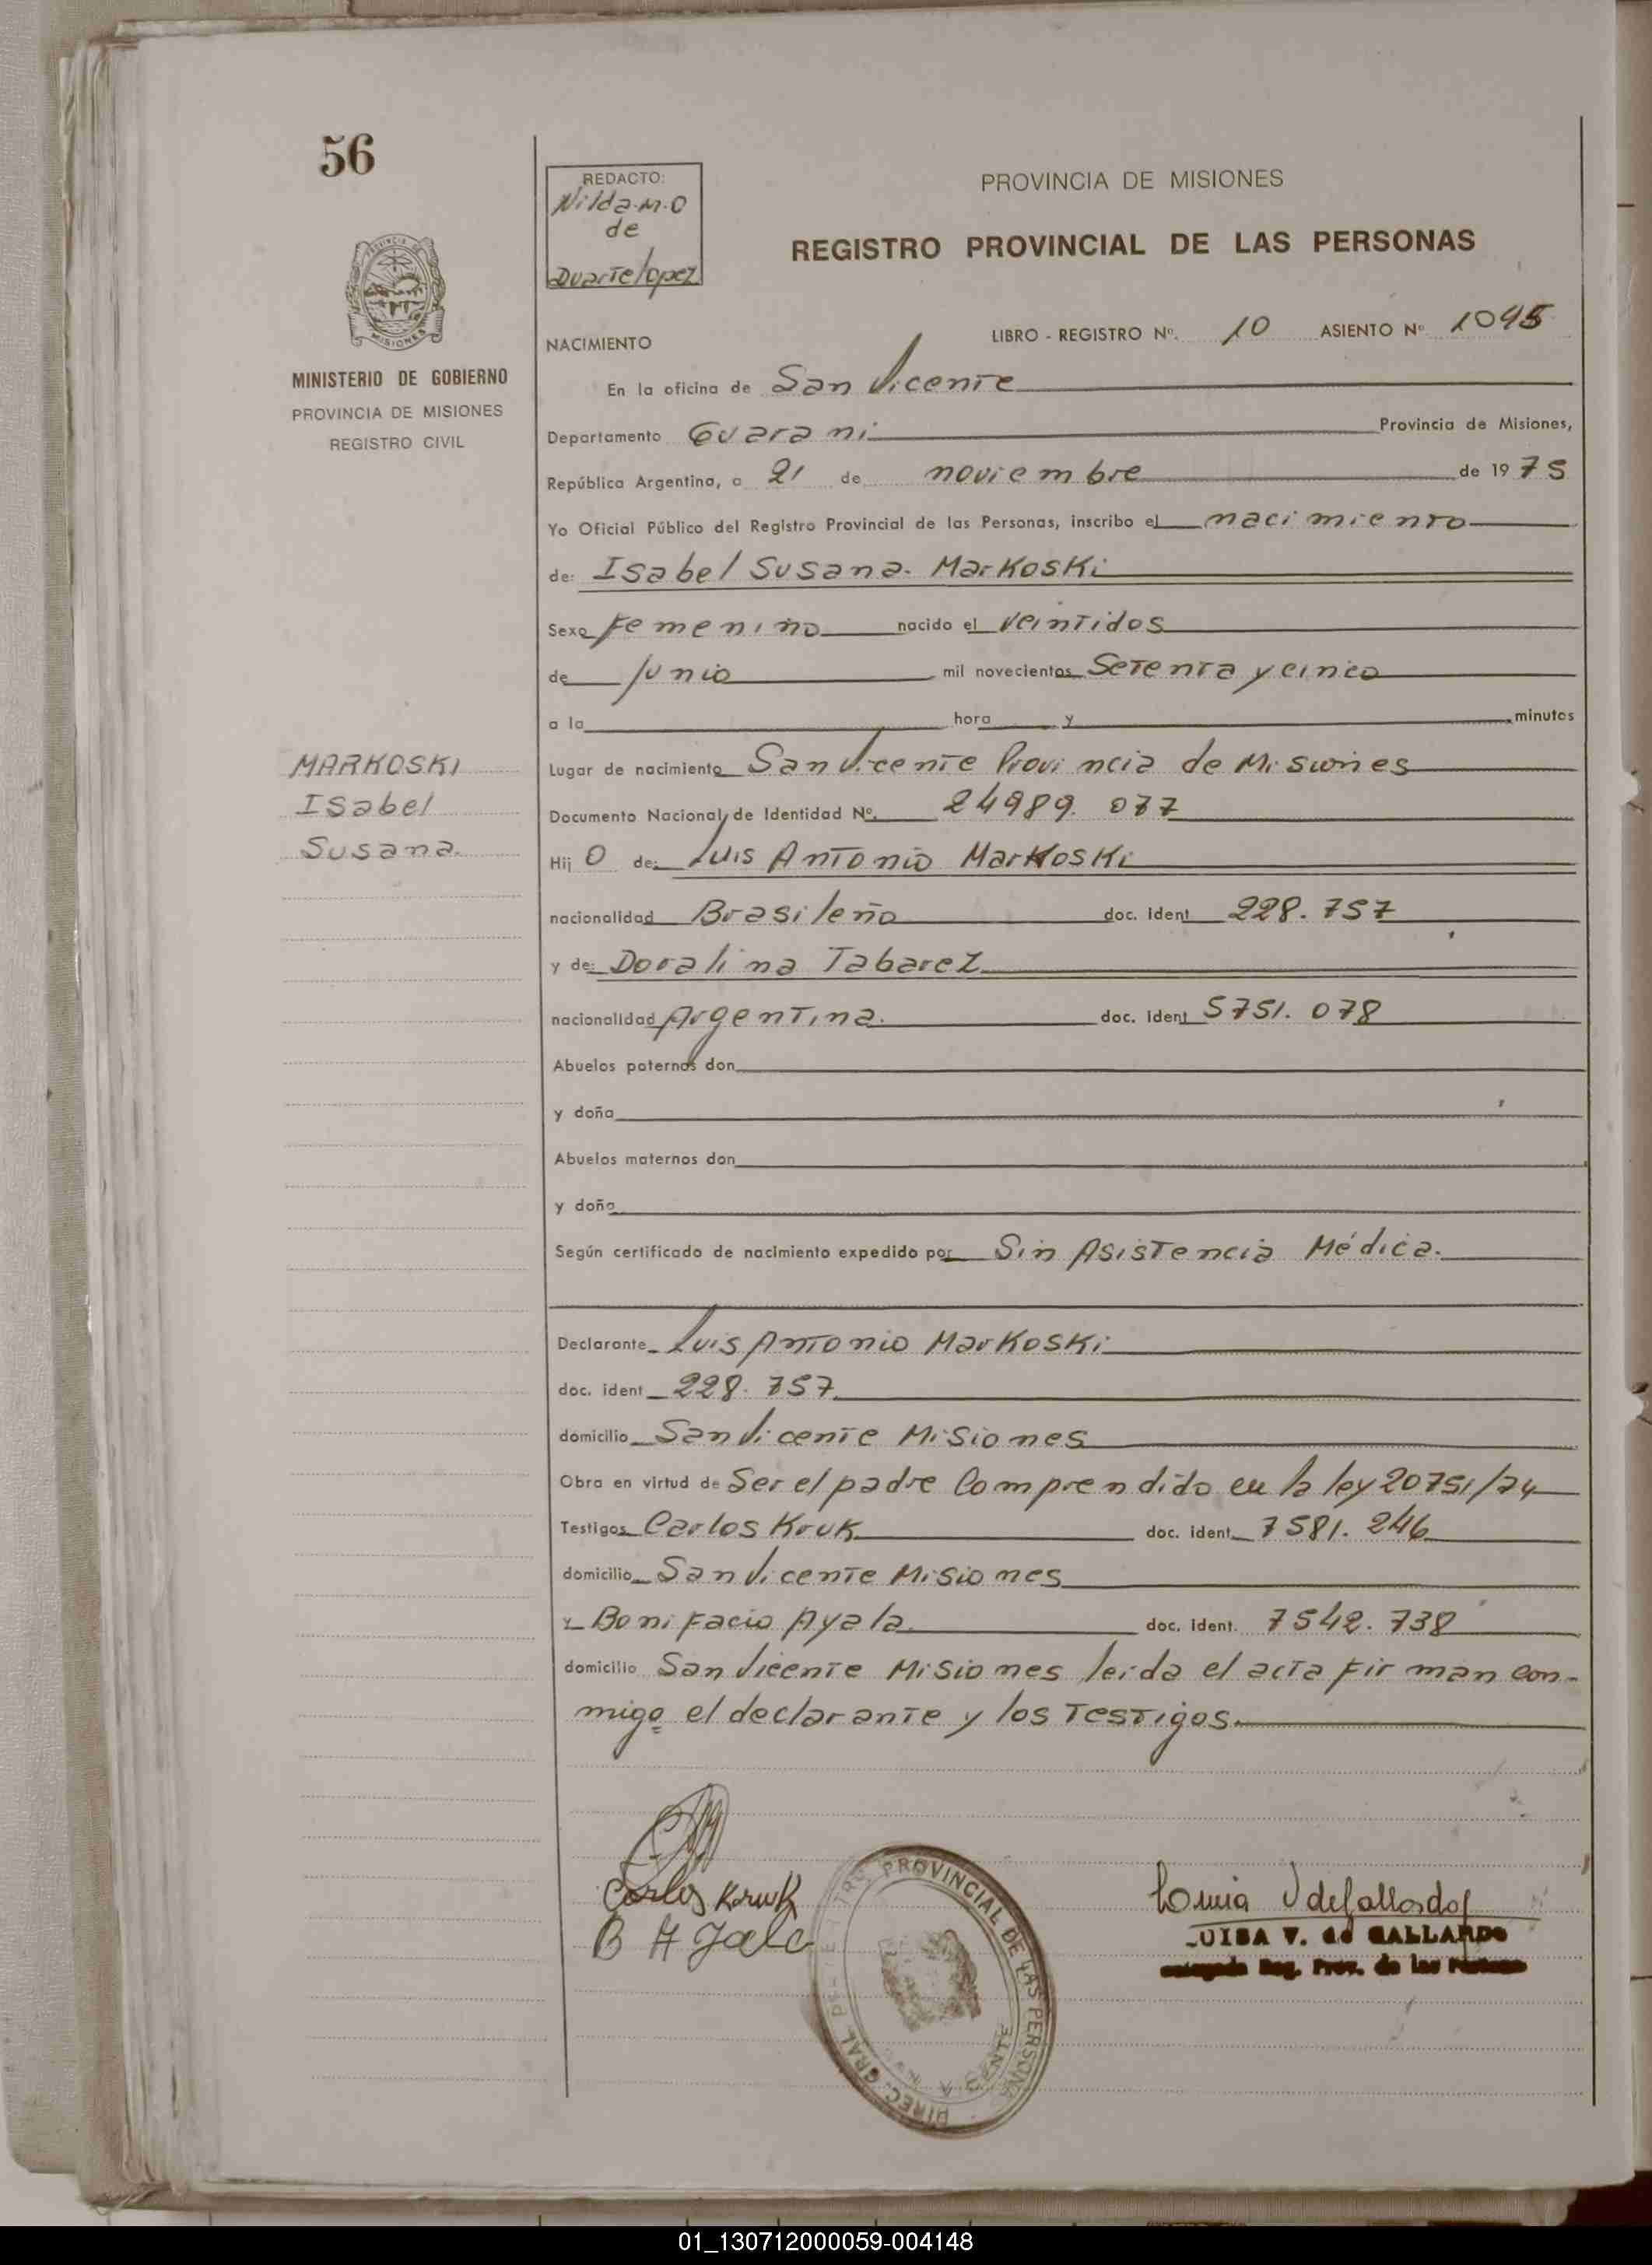 56
REDACTO:
Nilda.M.O
de
Duarte lopez
PROVINCIA DE MISIONES
REGISTRO PROVINCIAL DE LAS PERSONAS
MINISTERIO DE GOBIERNO
PROVINCIA DE MISIONES
REGISTRO CIVIL
NACIMIENTO
LIBRO - REGISTRO Nº. 10 ASIENTO Nº 1095
En la oficina de San Vicente
Departamento Guarani Provincia de Misiones,
República Argentina, a 21 de noviembre de 1975
Yo Oficial Público del Registro Provincial de las Personas, inscribo el nacimiento
de: Isabel Susana. Markoski
Sexo Femenino nacido el Veintidos
de Junio mil novecientos Setenta y cinco
a la hora y minutos
MARKOSKI
Isabel
Susana.
Lugar de nacimiento San Vicente Provincia de Misiones
Documento Nacional de Identidad Nº. 24989. 077
Hij O de: Luis Antonio Markoski
nacionalidad Brasileño doc. ident 228. 757
y de: Doralina Tabarez
nacionalidad Argentina. doc. ident 5751. 078
Abuelos paternos don
y doña
Abuelos maternos don
y doña
Según certificado de nacimiento expedido por Sin Asistencia Médica.
Declarante Luis Antonio Markoski
doc. ident 228. 757
domicilio San Vicente Misiones
Obra en virtud de Ser el padre Comprendido en la ley 20751/74
Testigos Carlos Kruk doc. ident 7581. 246
domicilio San Vicente Misiones
y Bonifacio Ayala. doc. ident. 7542. 738
domicilio San Vicente Misiones leida el acta Firman con-
migo el declarante y los Testigos.
Carlos Kruk
PROVINCIAL DE LAS PERSONA
DIREC. GRAL
LUISA V. de GALLARDO
Reg. Prov. de las
01_130712000059-004148